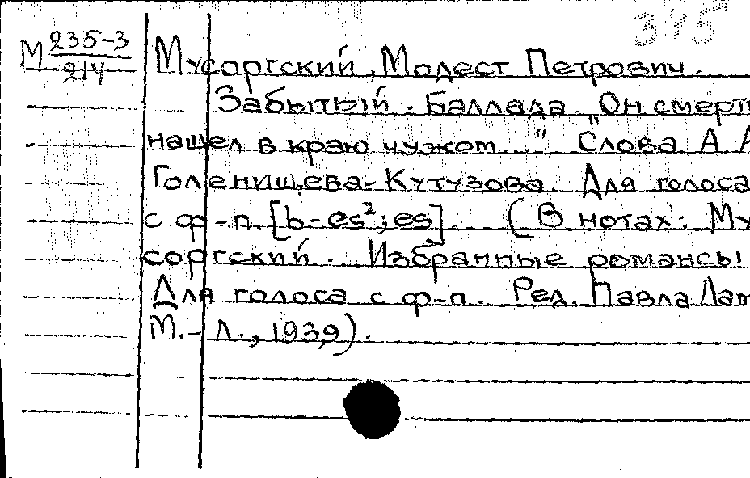 345
М 235-3
214
Мусоргский, Модест Петрович.
Забытый. Баллада. „Он смерт
нашел в краю чужом..." Слова А. А
Голенищева-Кутузова. Для голоса
с ф-п. [b-es²; es]. (В нотах: Му
соргский. Избранные романсы
Для голоса с ф-п. Ред. Павла Лам
М.-Л., 1939).